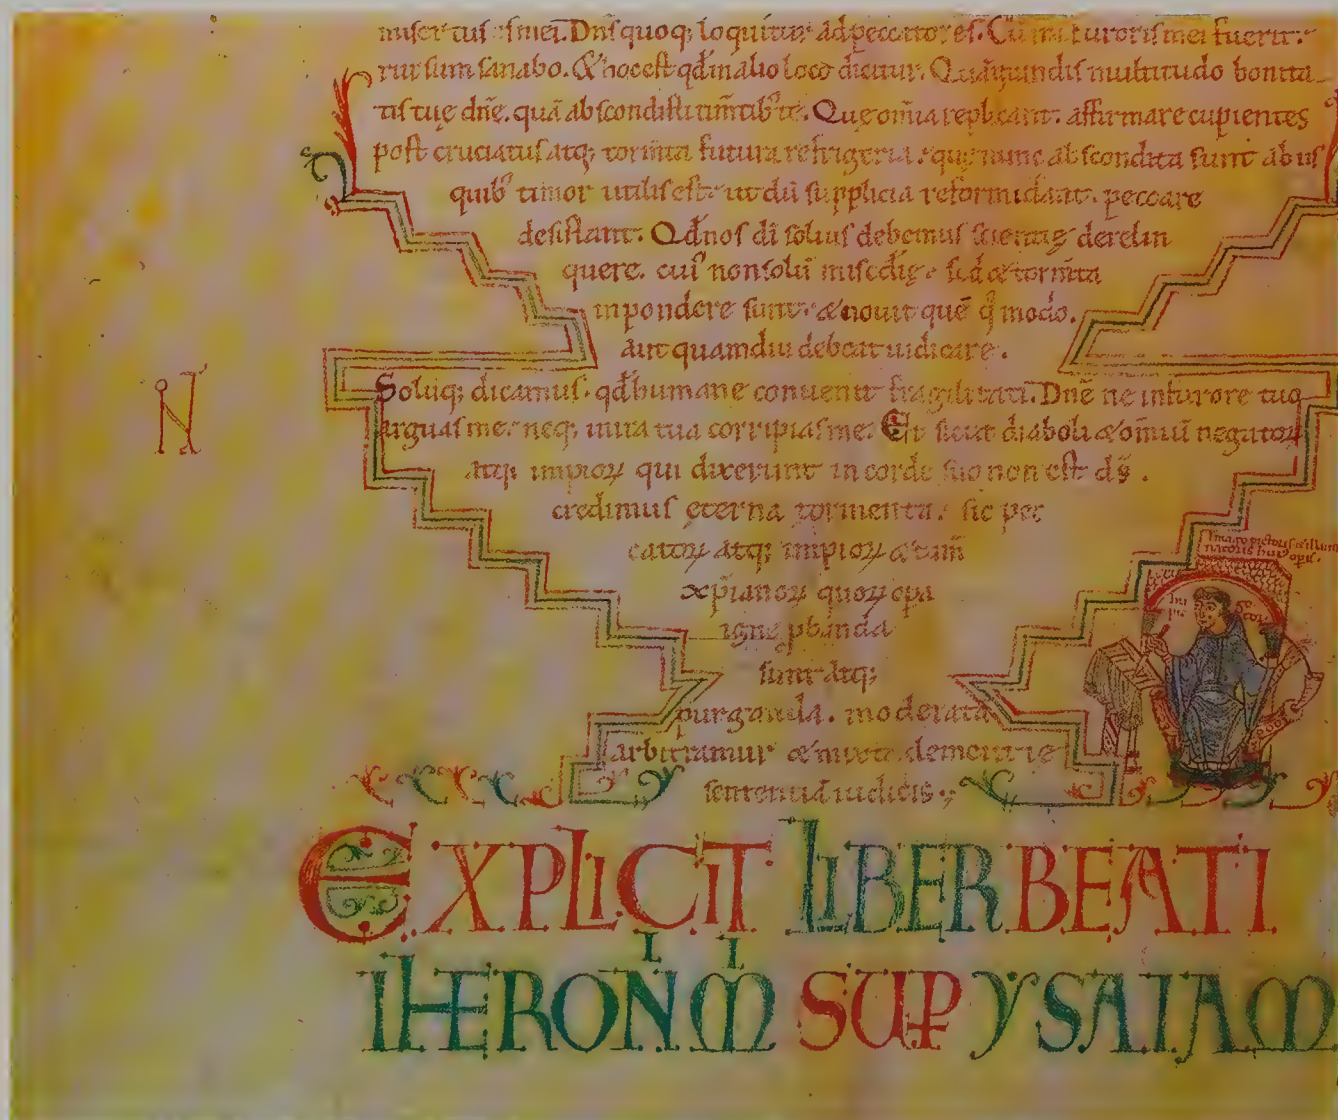 misertus sū mei. Dn̄s quoq; loquitur ad peccatores. Cū ira furoris mei fuerit.
rursum sanabo. & hoc est qđ in alio loco dicitur. Quā grandis multitudo bonita
tis tuę dn̄e. quā abscondisti tim̄tib' te. Que om̄ia replicant. affirmare cupientes
post cruciatus atq; torm̄ta futura refrigeria. que nunc abscondita sunt ab iis
quib' timor utilis est. ut dū supplicia reformidant. peccare
desistant. Qđ nos dī solius debemus scientię derelin
quere. cui' non solū mis̄cdię sed & torm̄ta
in pondere sunt. & nouit quē q̊modo.
aut quamdiu debeat iudicare.
Soluq; dicamus. qđ humane conuenit fragilitati. Dn̄e ne in furore tuo
arguas me. neq; in ira tua corripias me. Et sicut diaboli & om̄iū negatoꝝ
atq; impioꝝ qui dixerunt in corde suo non est dꝰ.
credimus ęterna tormenta. sic pec
catoꝝ atq; impioꝝ & tam̄
xp̄ianoꝝ quoꝝ opa
igne pbanda
sunt atq;
purganda. moderatā
arbitramur & mixtā clementię
sententiā iudicis.
N
Imago pictoris & illumi
natoris huius opis.
hugo pictor
EXPLICIT LIBER BEATI
IHERONIMI SUP YSAIAM